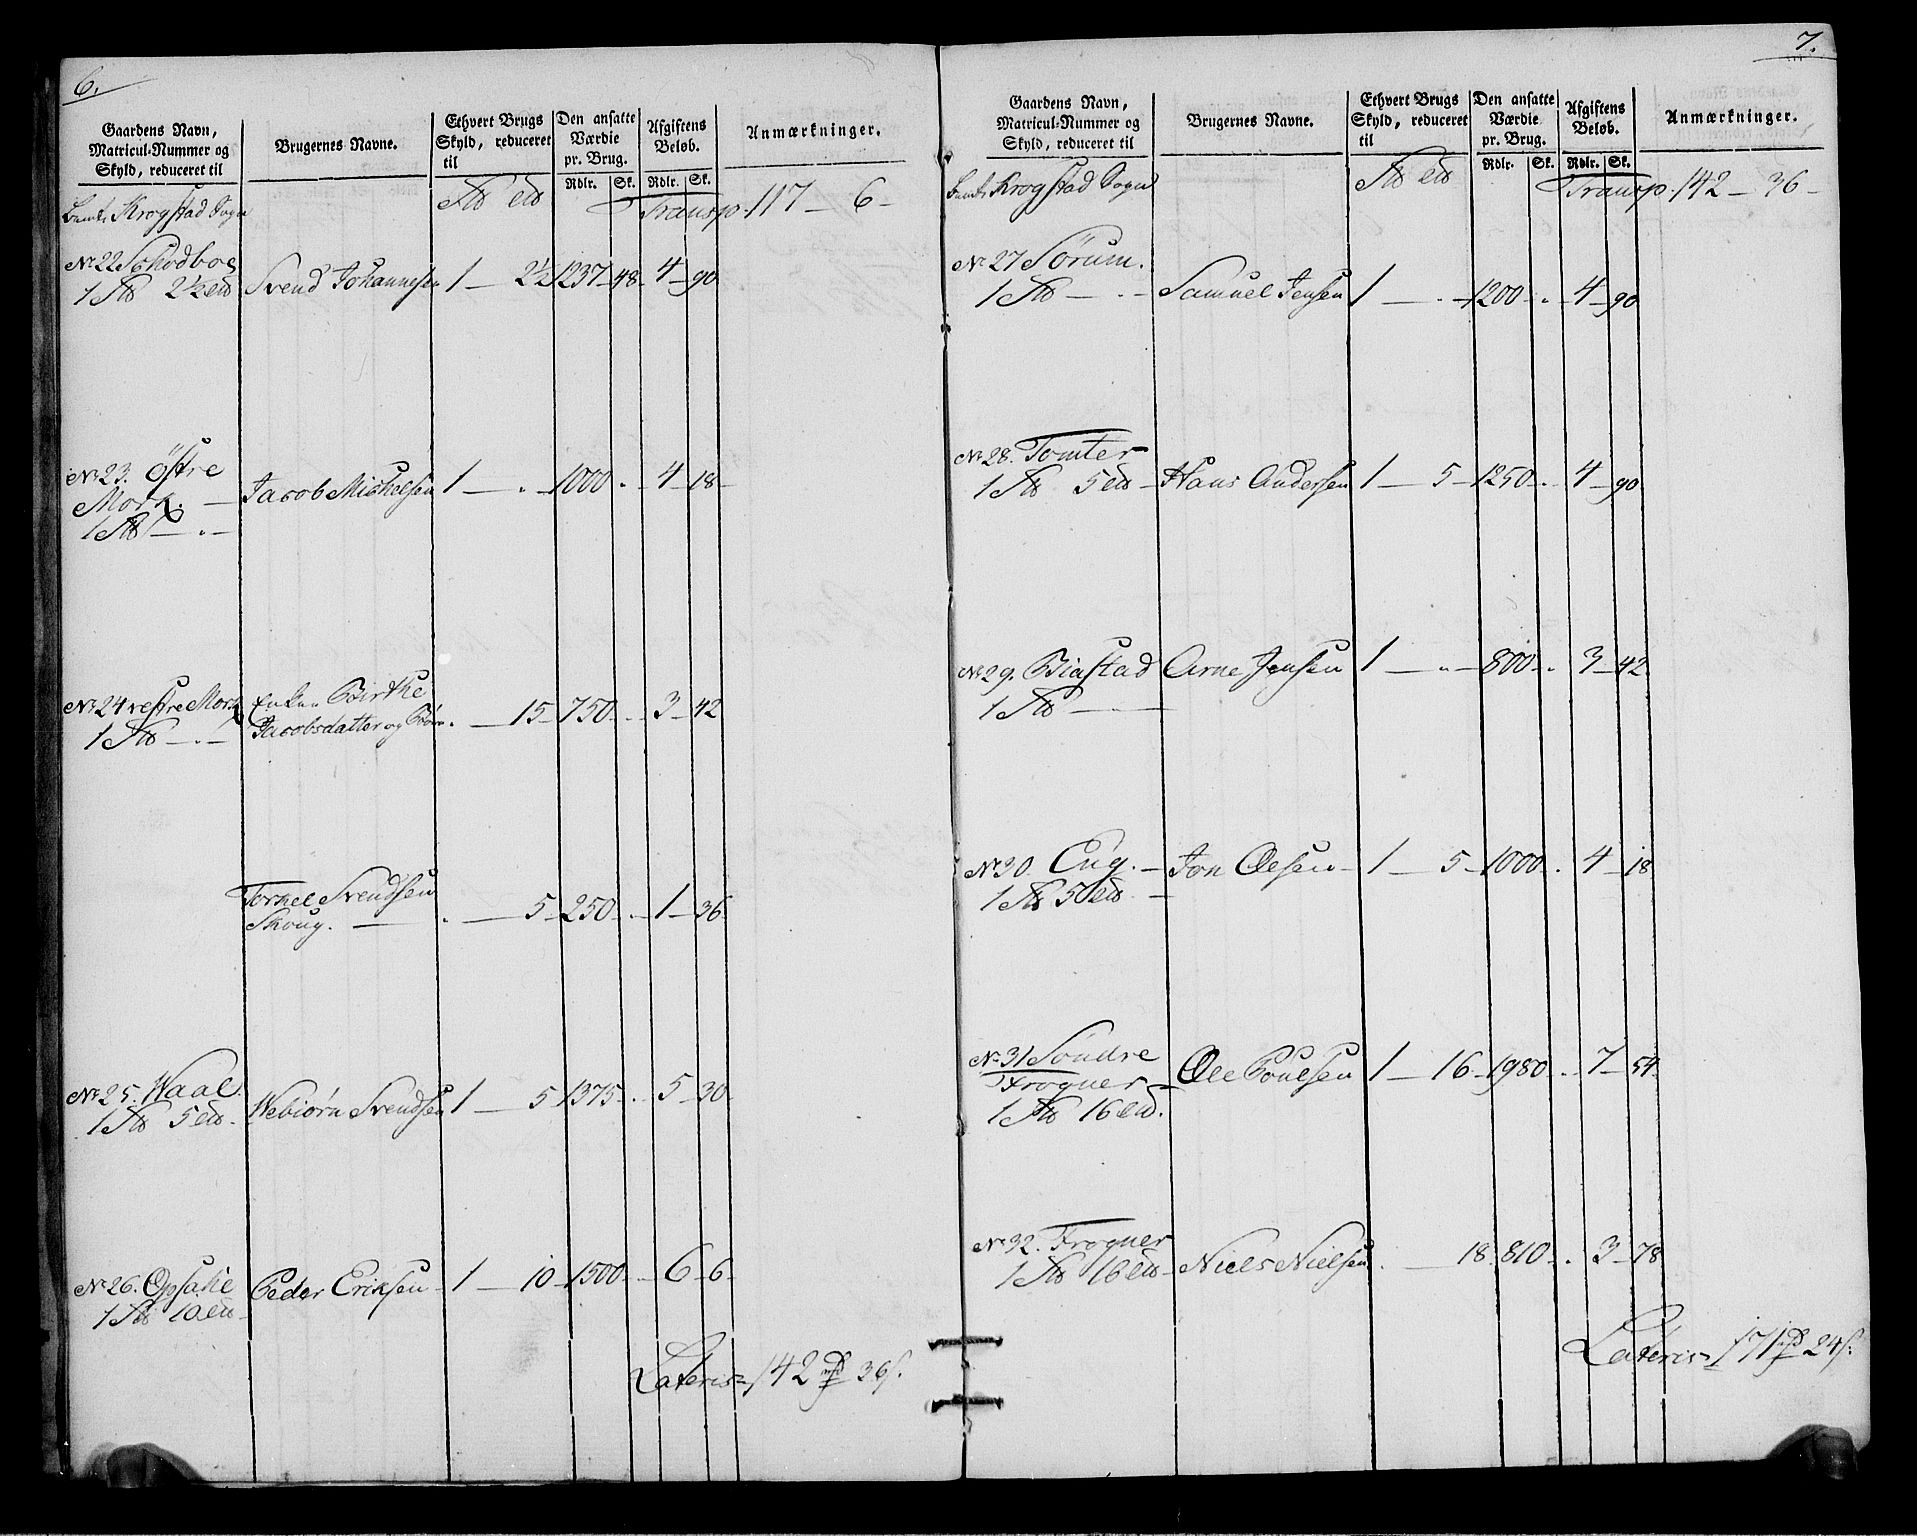 6.
Gaardens Navn, Matricul-Nummer og Skyld, reduceret til
Brugernes Navne.
Ethvert Brugs Skyld, reduceret til
Den ansatte Værdie pr. Brug.
Rdlr. Sk.
Afgiftens Beløb.
Rdlr. Sk.
Anmærkninger.
Krogstad Sogn Transp. 117 — 6 —
No 22 Schodboe
1 2½ Svend Johannesen 1 — 2½ 1237 — 48 — 4 — 90
No 23. Østre
Mork. — Jacob Mickelsen 1 — „ — 1000 „ — 4 — 18 —
1 — „ —
No 24 vestre Mork Enken Birthe
1 — „ — Jacobsdatter og Børn „ — 15 — 750 — „ — 3 — 42
Torkel Svendsen
Skoug. — „ — 5 — 250 — „ — 1 — 36
No 25. Waal
1 5 Webiørn Svendsen 1 — 5 — 1375 — „ — 5 — 30
No 26. Opsahl Peder Eriksen 1 — 10 — 1500 — „ — 6 — 6 —
1 10
Lateris 142 rd 36 s.
7.
Gaardens Navn, Matricul-Nummer og Skyld, reduceret til
Brugernes Navne.
Ethvert Brugs Skyld, reduceret til
Den ansatte Værdie pr. Brug.
Rdlr. Sk.
Afgiftens Beløb.
Rdlr. Sk.
Anmærkninger.
Krogstad Sogn Transp. 142 — 36 —
No 27 Sørum.
1 — „ — Samuel Jensen 1 — „ — 1200 — „ — 4 — 90
No 28. Tomter
1 5 — Hans Andersen 1 — 5 — 1250 — „ — 4 — 90
No 29. Biastad Arne Jensen 1 — „ — 800 — „ — 3 — 42
1 —
No 30. Eng. — Jon Olsen — 1 — 5 — 1000 — „ — 4 — 18
1 5 —
No 31 Søndre
Frogner — Ole Poulsen 1 — 16 — 1980 — „ — 7 — 54
1 16
No 32. Frogner
1 16 — Niels Nielsen „ — 18 810 — „ — 3 — 78
Lateris 171 rd 24 s.